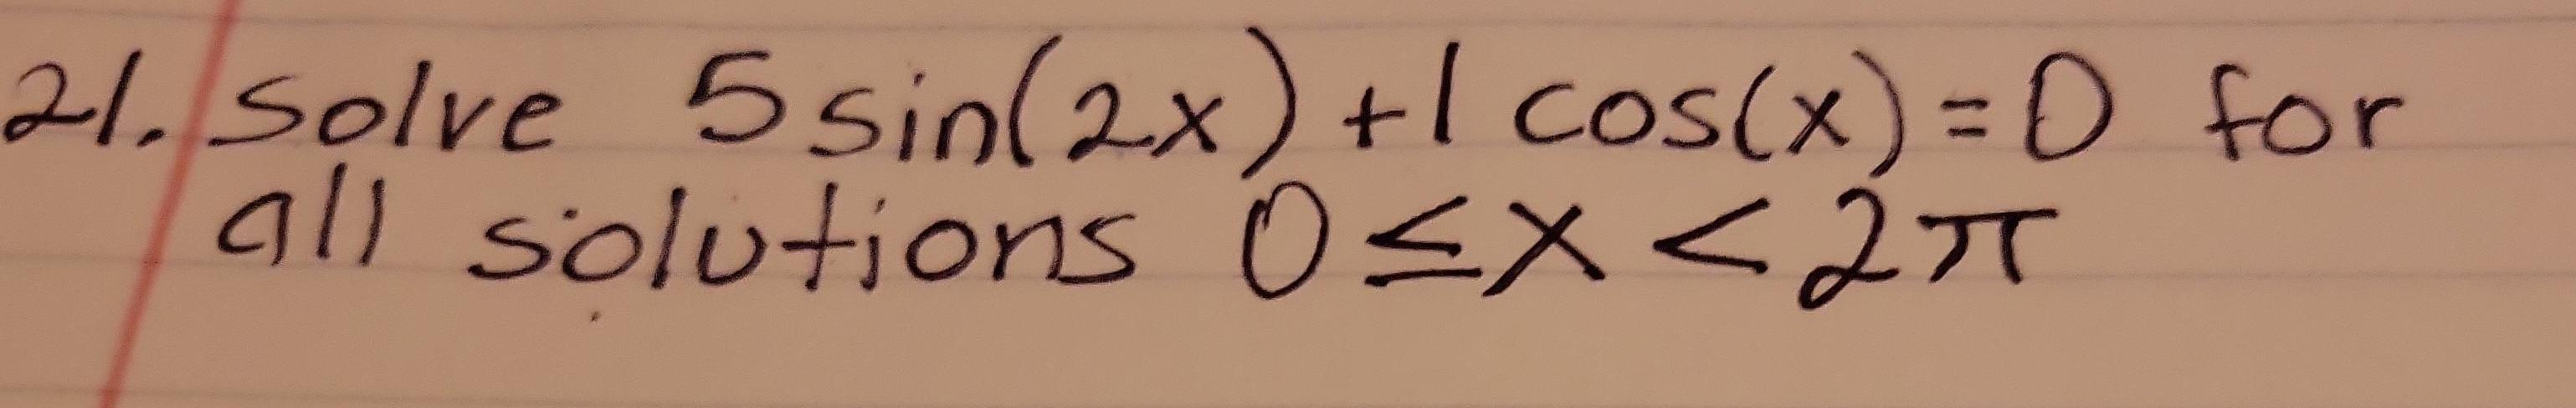 21. Solve 5 sin(2x) + 1 cos(x) = 0 for
all solutions 0 ≤ x < 2π